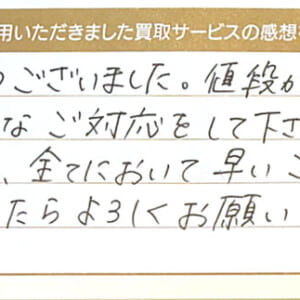 用いただきました買取サービスの感想
ございました。値段が
なご対応をして下さ
、全てにおいて早いご
たらよろしくお願い